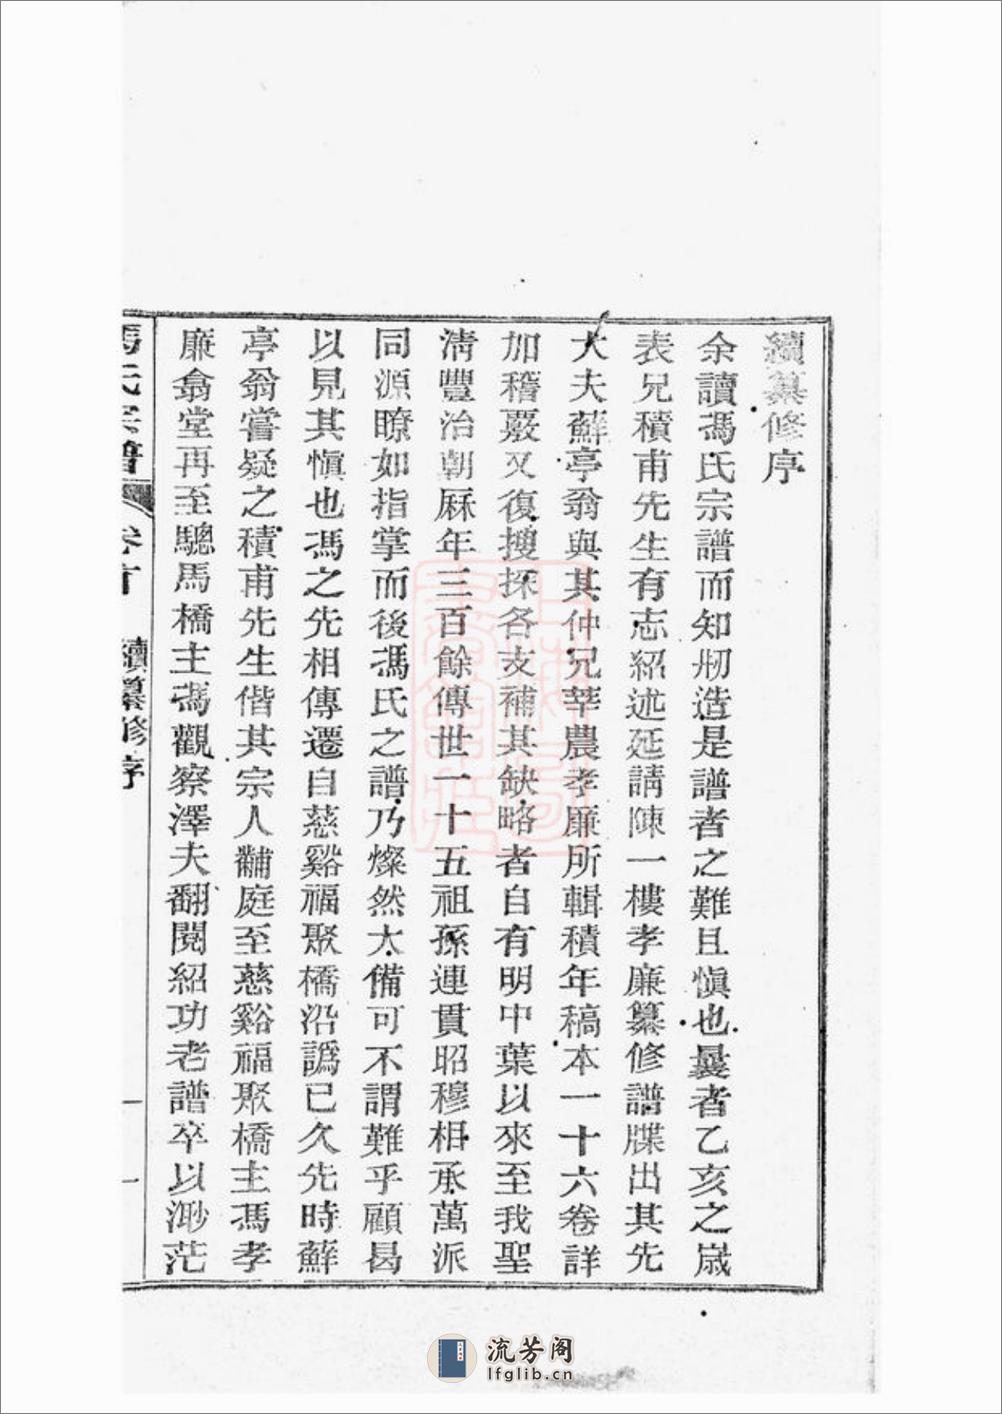 續纂修序
余讀馮氏宗譜而知剏造是譜者之難且慎也曩者乙亥之歲
表兄積甫先生有志紹述延請陳一樓孝廉纂修譜牒出其先
大夫蘇亭翁與其仲兄莘農孝廉所輯積年稿本一十六卷詳
加稽覈又復搜採各支補其缺略者自有明中葉以來至我聖
淸豐治朝厤年三百餘傳世一十五祖孫連貫昭穆相承萬派
同源瞭如指掌而後馮氏之譜乃燦然大備可不謂難乎顧曷
以見其愼也馮之先相傳遷自慈谿福聚橋沿譌已久先時蘇
亭翁嘗疑之積甫先生偕其宗人黼庭至慈谿福聚橋主馮孝
廉翕堂再至驄馬橋主馮觀察澤夫翻閱紹功老譜卒以渺茫
馮氏宗譜 卷首 續纂修序 一 一
流芳阁
lfglib.cn